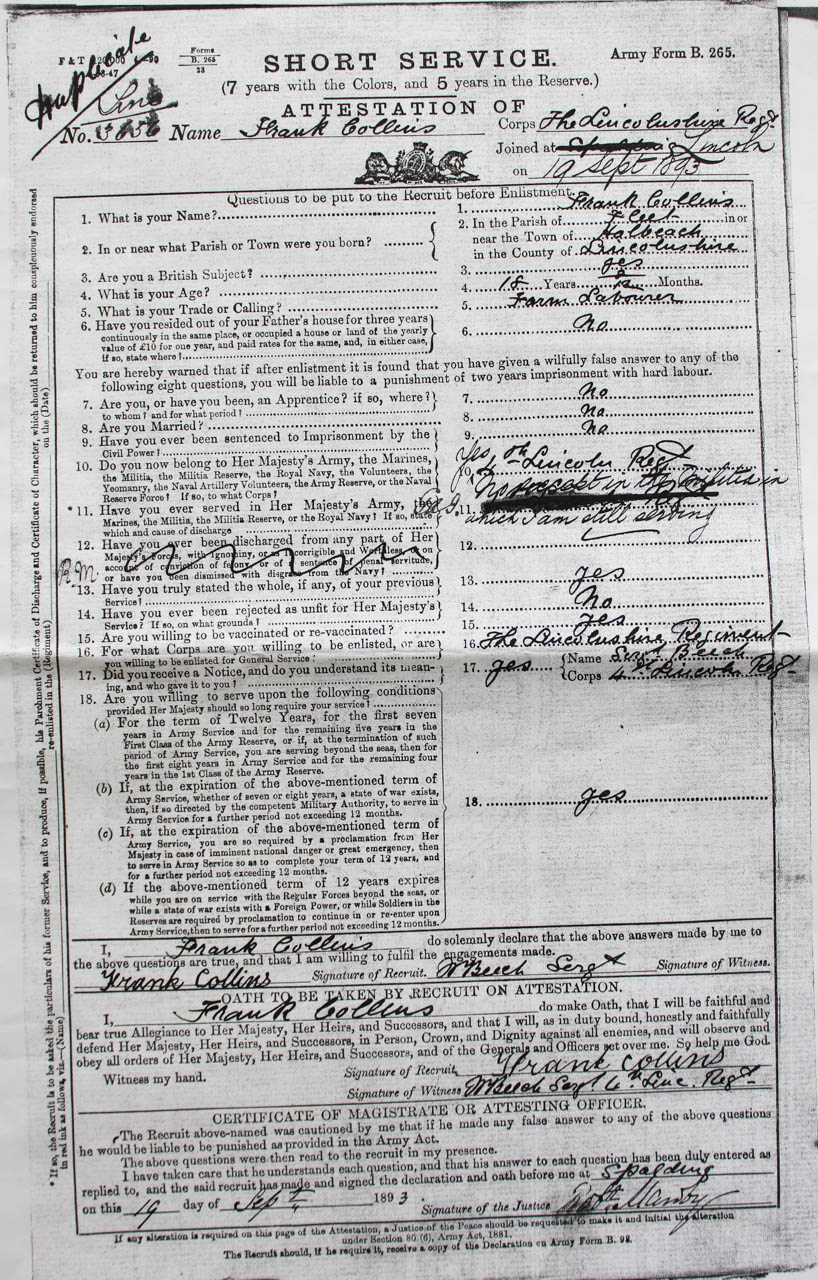 Duplicate
F & T
Forms
B. 265
23
SHORT SERVICE.
Army Form B. 265.
(7 years with the Colors, and 5 years in the Reserve.)
ATTESTATION OF
Linc
No. Name Frank Collins
Corps The Lincolnshire Regt
Joined at Lincoln
on 19 Sept 1893
Questions to be put to the Recruit before Enlistment.
1. What is your Name?
1. Frank Collins
2. In or near what Parish or Town were you born?
2. In the Parish of Fleet in or
near the Town of Holbeach
in the County of Lincolnshire
3. Are you a British Subject?
3. yes
4. What is your Age?
4. 18 Years Months.
5. What is your Trade or Calling?
5. Farm Labourer
6. Have you resided out of your Father's house for three years
continuously in the same place, or occupied a house or land of the yearly
value of £10 for one year, and paid rates for the same, and, in either case,
if so, state where?
6. No
You are hereby warned that if after enlistment it is found that you have given a wilfully false answer to any of the
following eight questions, you will be liable to a punishment of two years imprisonment with hard labour.
7. Are you, or have you been, an Apprentice? if so, where?
to whom? and for what period?
7. No
8. Are you Married?
8. No
9. Have you ever been sentenced to Imprisonment by the
Civil Power?
9. No
10. Do you now belong to Her Majesty's Army, the Marines,
the Militia, the Militia Reserve, the Royal Navy, the Volunteers, the
Yeomanry, the Naval Artillery Volunteers, the Army Reserve, or the Naval
Reserve Force? If so, to what Corps?
10. Yes 4th Lincoln Regt
*11. Have you ever served in Her Majesty's Army, the
Marines, the Militia, the Militia Reserve, or the Royal Navy? If so, state
which and cause of discharge
11. No except in the Militia in
which I am still serving
12. Have you ever been discharged from any part of Her
Majesty's Forces, with Ignominy, or as Incorrigible and Worthless, or on
account of conviction of felony, or of a sentence of penal servitude,
or have you been dismissed with disgrace from the Navy?
12.
R.M.
*13. Have you truly stated the whole, if any, of your previous
Service?
13. yes
14. Have you ever been rejected as unfit for Her Majesty's
Service? If so, on what grounds?
14. No
15. Are you willing to be vaccinated or re-vaccinated?
15. yes
16. For what Corps are you willing to be enlisted, or are
you willing to be enlisted for General Service?
16. The Lincolnshire Regiment
17. Did you receive a Notice, and do you understand its mean-
ing, and who gave it to you?
17. yes Name Sergt Beech
Corps 4th Lincoln Regt
18. Are you willing to serve upon the following conditions
provided Her Majesty should so long require your service?
(a) For the term of Twelve Years, for the first seven
years in Army Service and for the remaining five years in the
First Class of the Army Reserve, or if, at the termination of such
period of Army Service, you are serving beyond the seas, then for
the first eight years in Army Service and for the remaining four
years in the 1st Class of the Army Reserve.
(b) If, at the expiration of the above-mentioned term of
Army Service, whether of seven or eight years, a state of war exists,
then, if so directed by the competent Military Authority, to serve in
Army Service for a further period not exceeding 12 months.
18. yes
(c) If, at the expiration of the above-mentioned term of
Army Service, you are so required by a proclamation from Her
Majesty in case of imminent national danger or great emergency, then
to serve in Army Service so as to complete your term of 12 years, and
for a further period not exceeding 12 months.
(d) If the above-mentioned term of 12 years expires
while you are on service with the Regular Forces beyond the seas, or
while a state of war exists with a Foreign Power, or while Soldiers in the
Reserves are required by proclamation to continue in or re-enter upon
Army Service, then to serve for a further period not exceeding 12 months.
I, Frank Collins do solemnly declare that the above answers made by me to
the above questions are true, and that I am willing to fulfil the engagements made.
Frank Collins Signature of Recruit. W Beech Sergt Signature of Witness.
OATH TO BE TAKEN BY RECRUIT ON ATTESTATION.
I, Frank Collins do make Oath, that I will be faithful and
bear true Allegiance to Her Majesty, Her Heirs, and Successors, and that I will, as in duty bound, honestly and faithfully
defend Her Majesty, Her Heirs, and Successors, in Person, Crown, and Dignity against all enemies, and will observe and
obey all orders of Her Majesty, Her Heirs, and Successors, and of the Generals and Officers set over me. So help me God.
Witness my hand. Signature of Recruit Frank Collins
Signature of Witness W Beech Sergt 4th Linc. Regt
CERTIFICATE OF MAGISTRATE OR ATTESTING OFFICER.
The Recruit above-named was cautioned by me that if he made any false answer to any of the above questions
he would be liable to be punished as provided in the Army Act.
The above questions were then read to the recruit in my presence.
I have taken care that he understands each question, and that his answer to each question has been duly entered as
replied to, and the said recruit has made and signed the declaration and oath before me at Spalding
on this 19 day of Septr 1893. Signature of the Justice
If any alteration is required on this page of the Attestation, a Justice of the Peace should be requested to make it and initial the alteration
under Section 80 (6), Army Act, 1881.
The Recruit should, if he require it, receive a copy of the Declaration on Army Form B. 98.
* If so, the Recruit is to be asked the particulars of his former Service, and to produce, if possible, his Parchment Certificate of Discharge and Certificate of Character, which should be returned to him conspicuously endorsed
in red ink as follows, viz.—(Name) re-enlisted in the (Regiment) on the (Date)